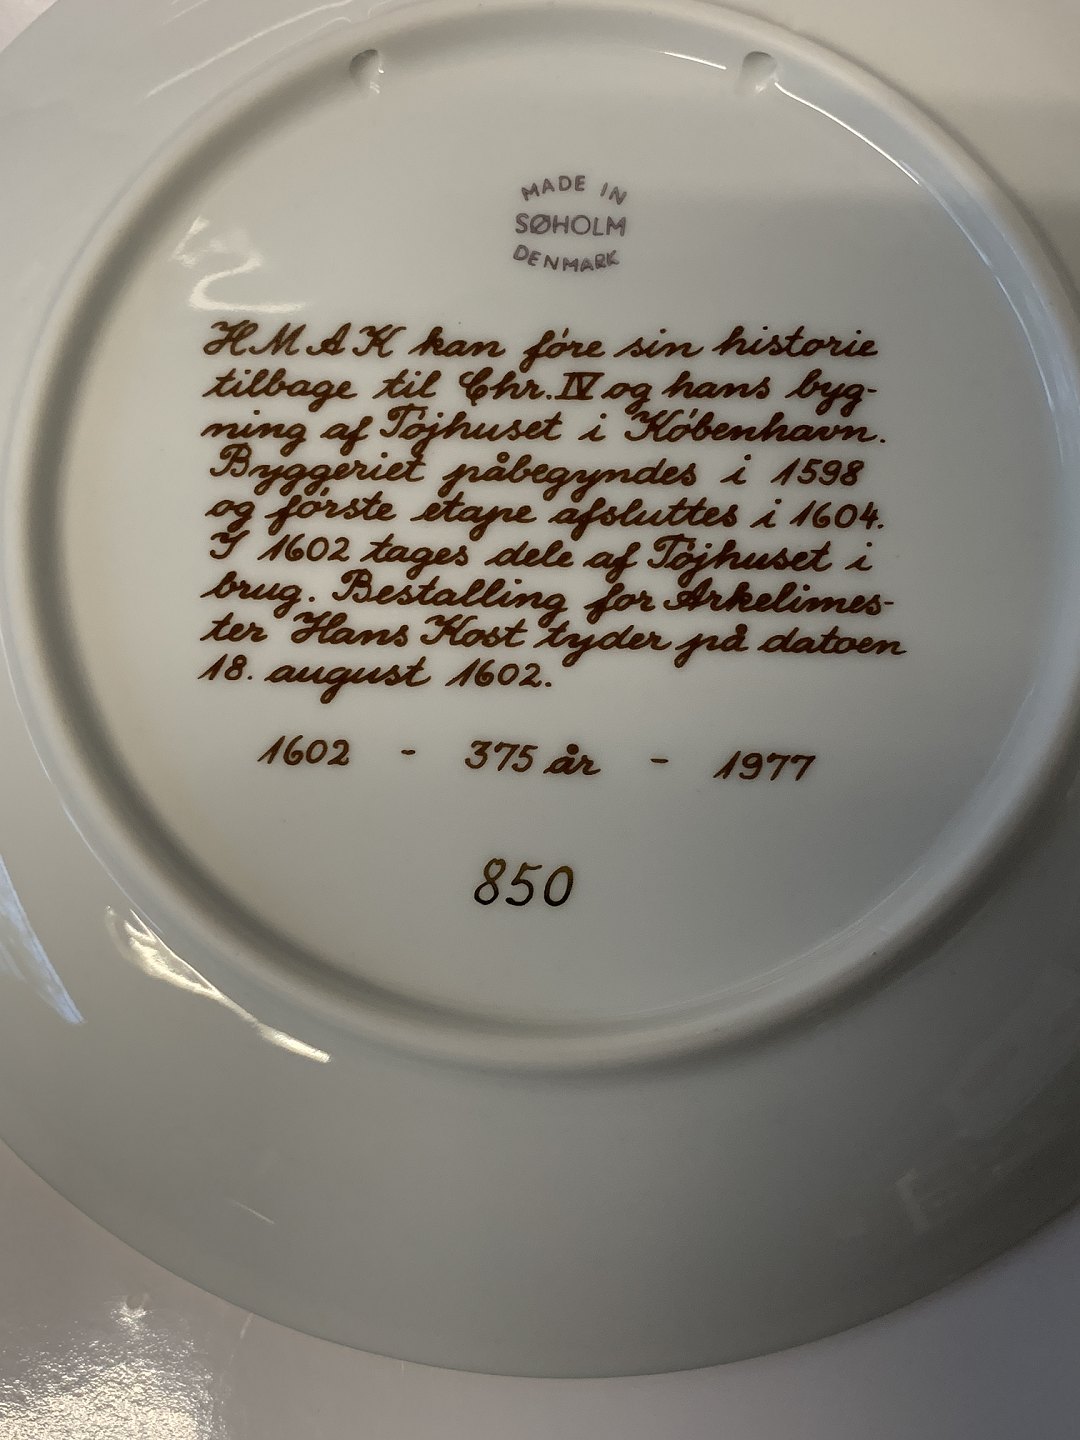 MADE IN
SØHOLM
DENMARK
HMAK kan føre sin historie
tilbage til Chr. IV og hans byg-
ning af Tøjhuset i København.
Byggeriet påbegyndes i 1598
og første etape afsluttes i 1604.
I 1602 tages dele af Tøjhuset i
brug. Bestalling for Arkelimes-
ter Hans Kost tyder på datoen
18. august 1602.
1602 - 375 år - 1977
850